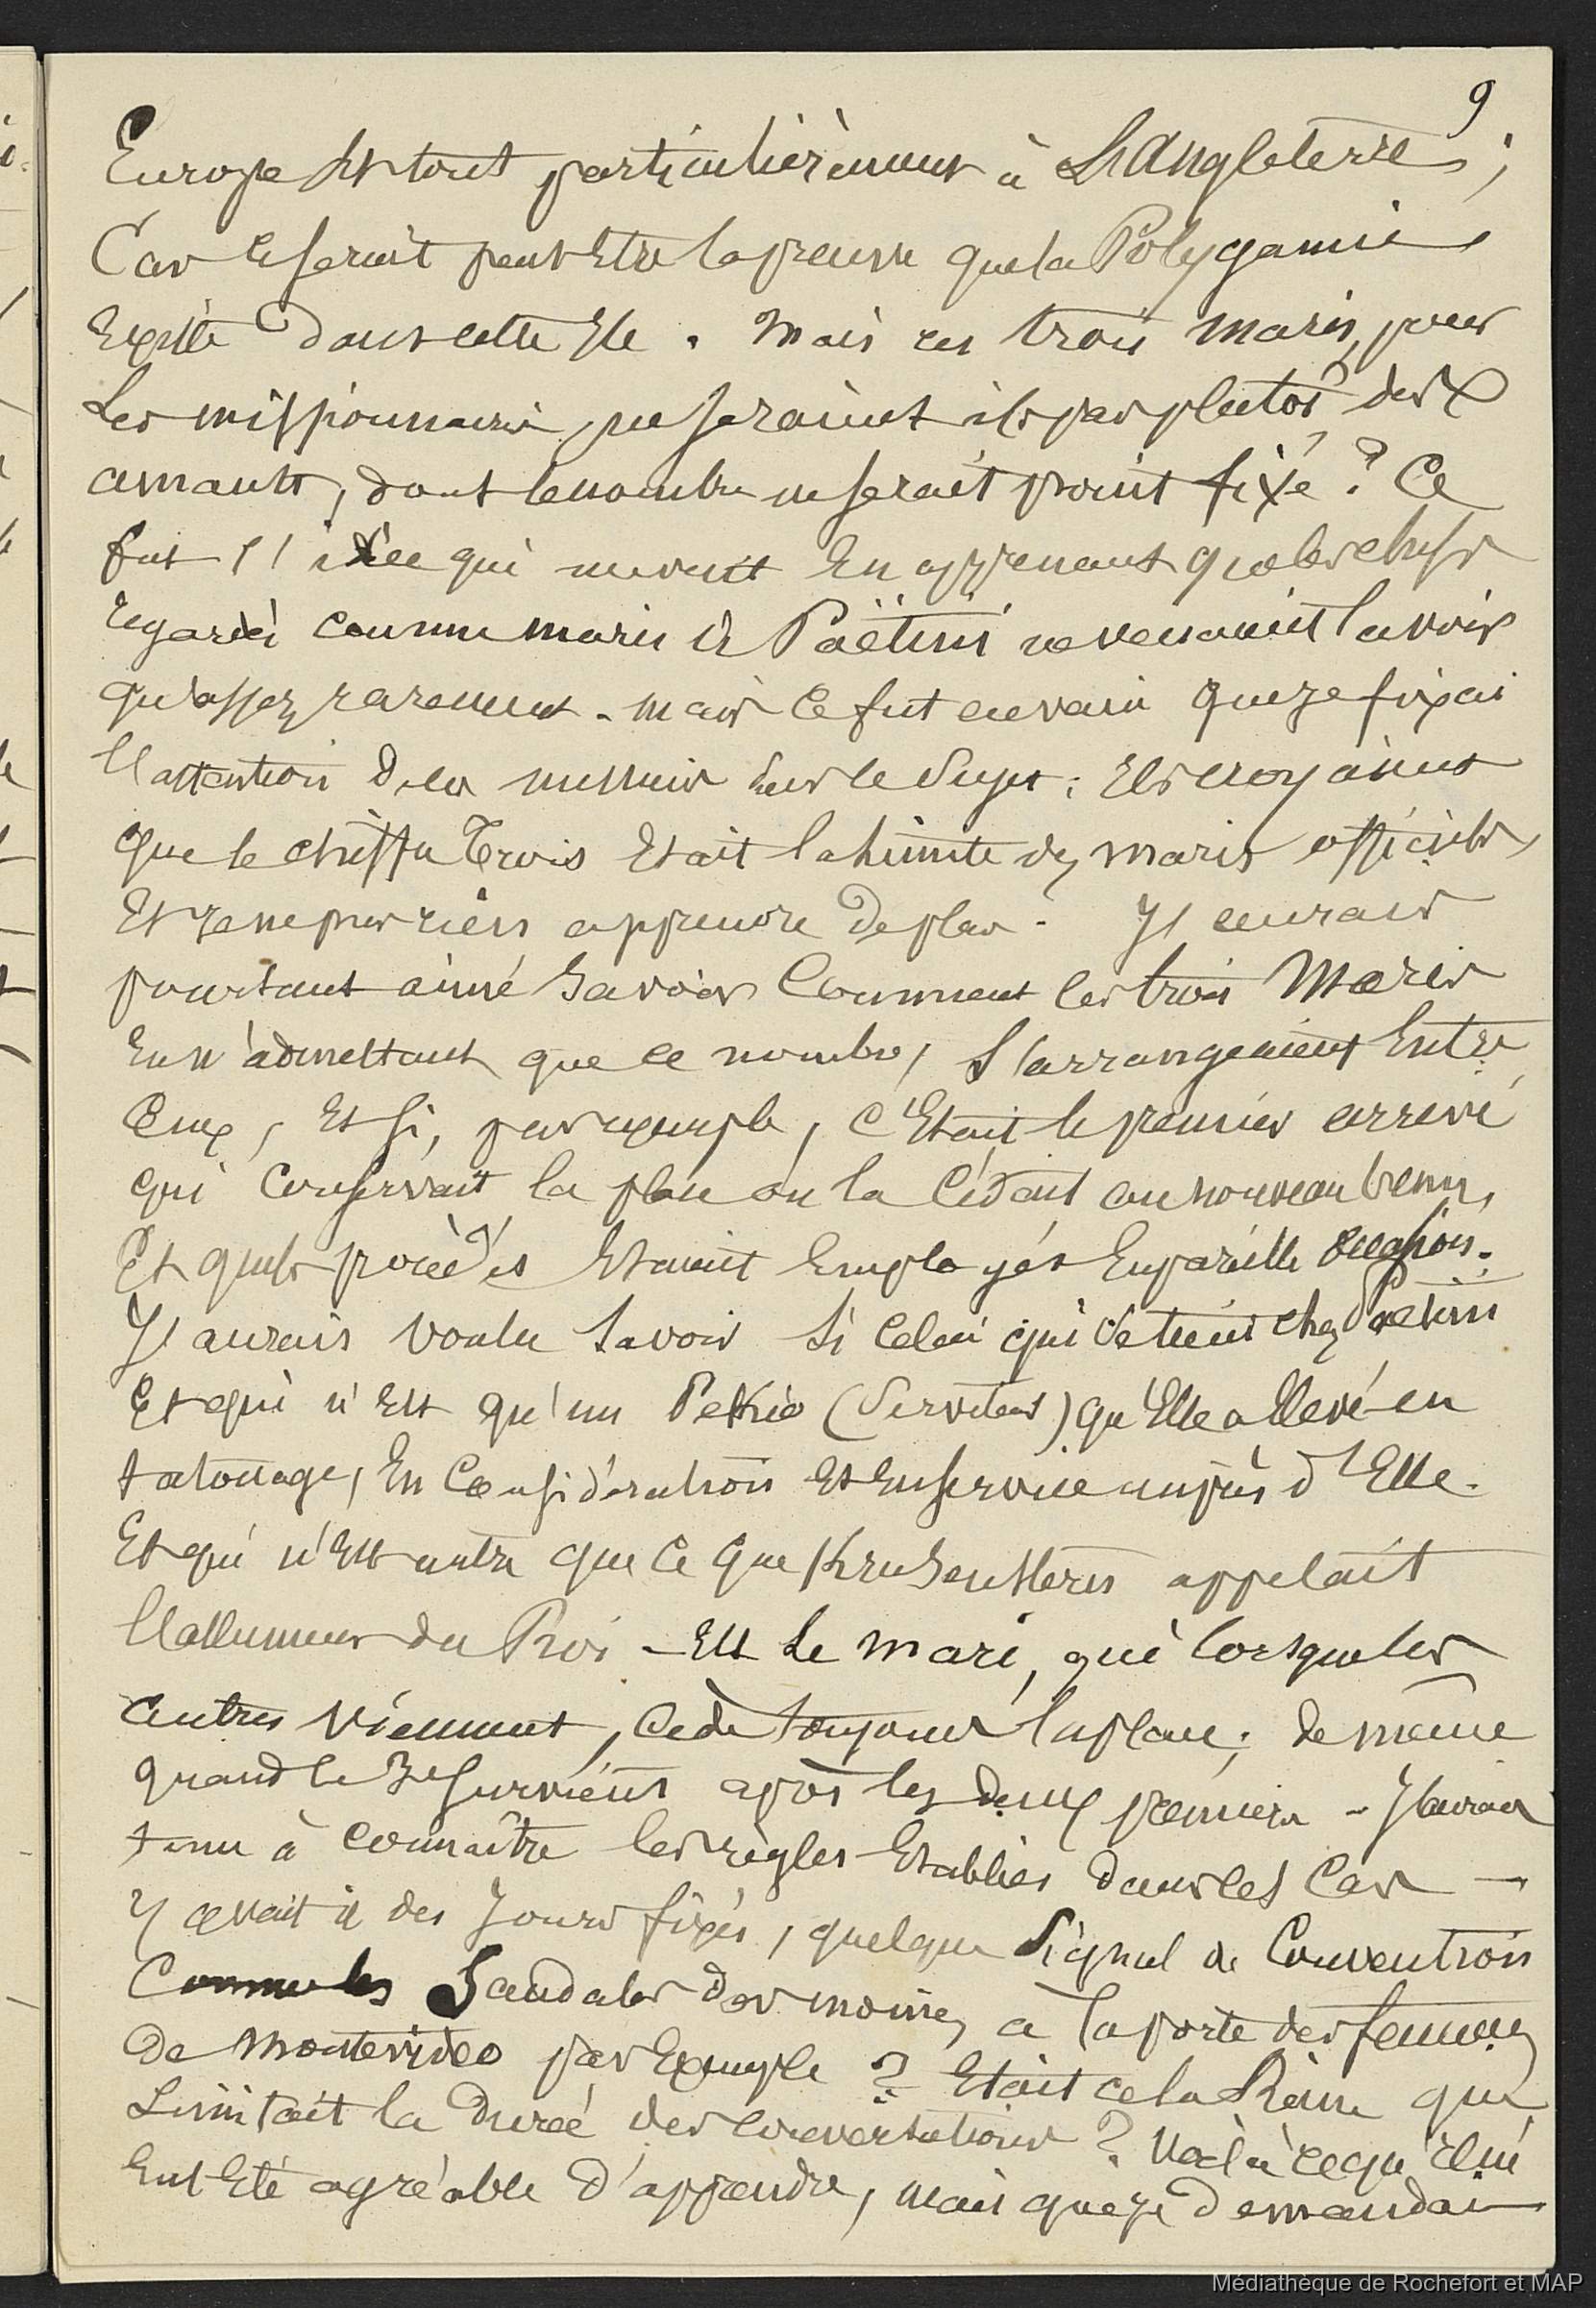 9
Europe Et tout particulièrement à L'Angleterre ;
Car ce serait peut Etre la preuve que la Polygamie
Existe dans cette Ile . Mais ces trois maris, pour
Les missionnaires, ne seraient ils pas plutôt des
amants, dont le nombre ne serait point fixé ? Ce
fut l'idée qui me vint En apprenant que les chefs
regardés comme maris de Paëtini ne venaient la voir
qu'assez rarement - mais Ce fut en vain que je fixai
l'attention de ces messieurs Sur le Sujet ; Ils croyaient
que le chiffre Trois Etait la limite des maris officiels,
Et je ne pus rien apprendre de plus . J'aurais
pourtant aimé Savoir Comment les trois Maris
En n'admettant que ce nombre, S'arrangeaient Entre
Eux, Et Si, par exemple, C'Etait le premier arrivé
qui Conservait la place ou la Cédait au nouveau venu,
Et quels procédés Etaient Employés En pareille occasion.
J'aurais voulu Savoir Si Celui qui Se tient chez Paetini
Et qui n'Est qu'un Pekio (Serviteur) qu'Elle a Elevé en
tatouage, En Considération Et En Service auprès d'Elle.
Et qui n'Est autre que Ce que Krusenstern appelait
l'allumeur du Roi - Est Le mari, qui lorsque les
autres viennent, Cède toujours la place ; de même
quand le 3e Survient après les deux premiers - J'aurais
tenu à Connaître les règles Etablies dans ces Cas -
Y avait il des Jours fixés, quelque Signal de Convention
Comme les Sandales des moines à la porte des femmes
de Montevideo par Exemple ? Etait ce la Reine qui
Limitait la Durée des Conversations ? Voilà ce qu'il m'
Eut Eté agréable d'apprendre, mais que je demandai
Médiathèque de Rochefort et MAP